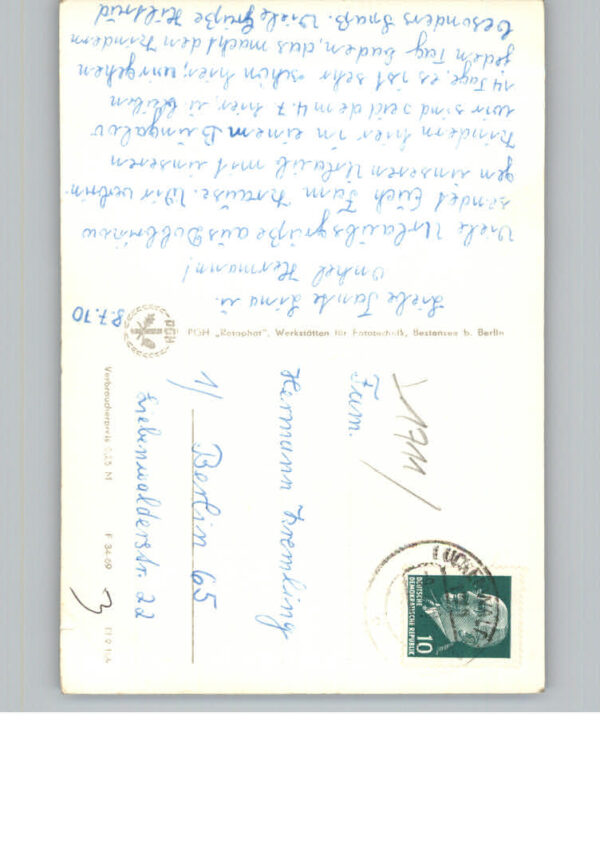 8.7.70
Liebe Tante Lina u.
Onkel Hermann!
Viele Urlaubsgrüße aus Dobbrikow
sendet Euch Fam. Krause. Wir verbrin-
gen unseren Urlaub mit unseren
Kindern hier in einem Bungalov
wir sind seid dem 4.7. hier, u. bleiben
14 Tage, es ist sehr schön hier, wir gehen
jeden Tag baden, das macht den Kindern
besonders Spaß. Viele Grüße Hiltrud
PGH
PGH „Rotophot", Werkstätten für Fototechnik, Bestensee b. Berlin
1711/
Fam.
Hermann Kremling
1/ Berlin 65
Liebenwalderstr. 22
DEUTSCHE
DEMOKRATISCHE REPUBLIK
10
Verbraucherpreis 0,15 M
F 34-69
3